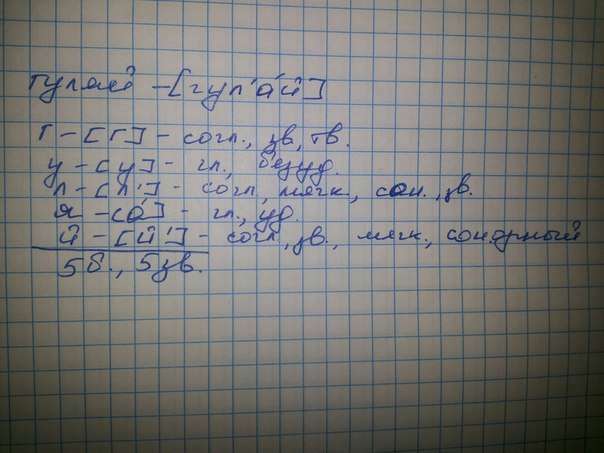 гуляй - [гул'а́й]
г - [г] - согл., зв, тв.
у - [у] - гл., безуд.
л - [л'] - согл, мягк, сон., зв.
я - [а́] - гл., уд.
й - [й'] - согл., зв., мягк., сонорный
5 б., 5 зв.